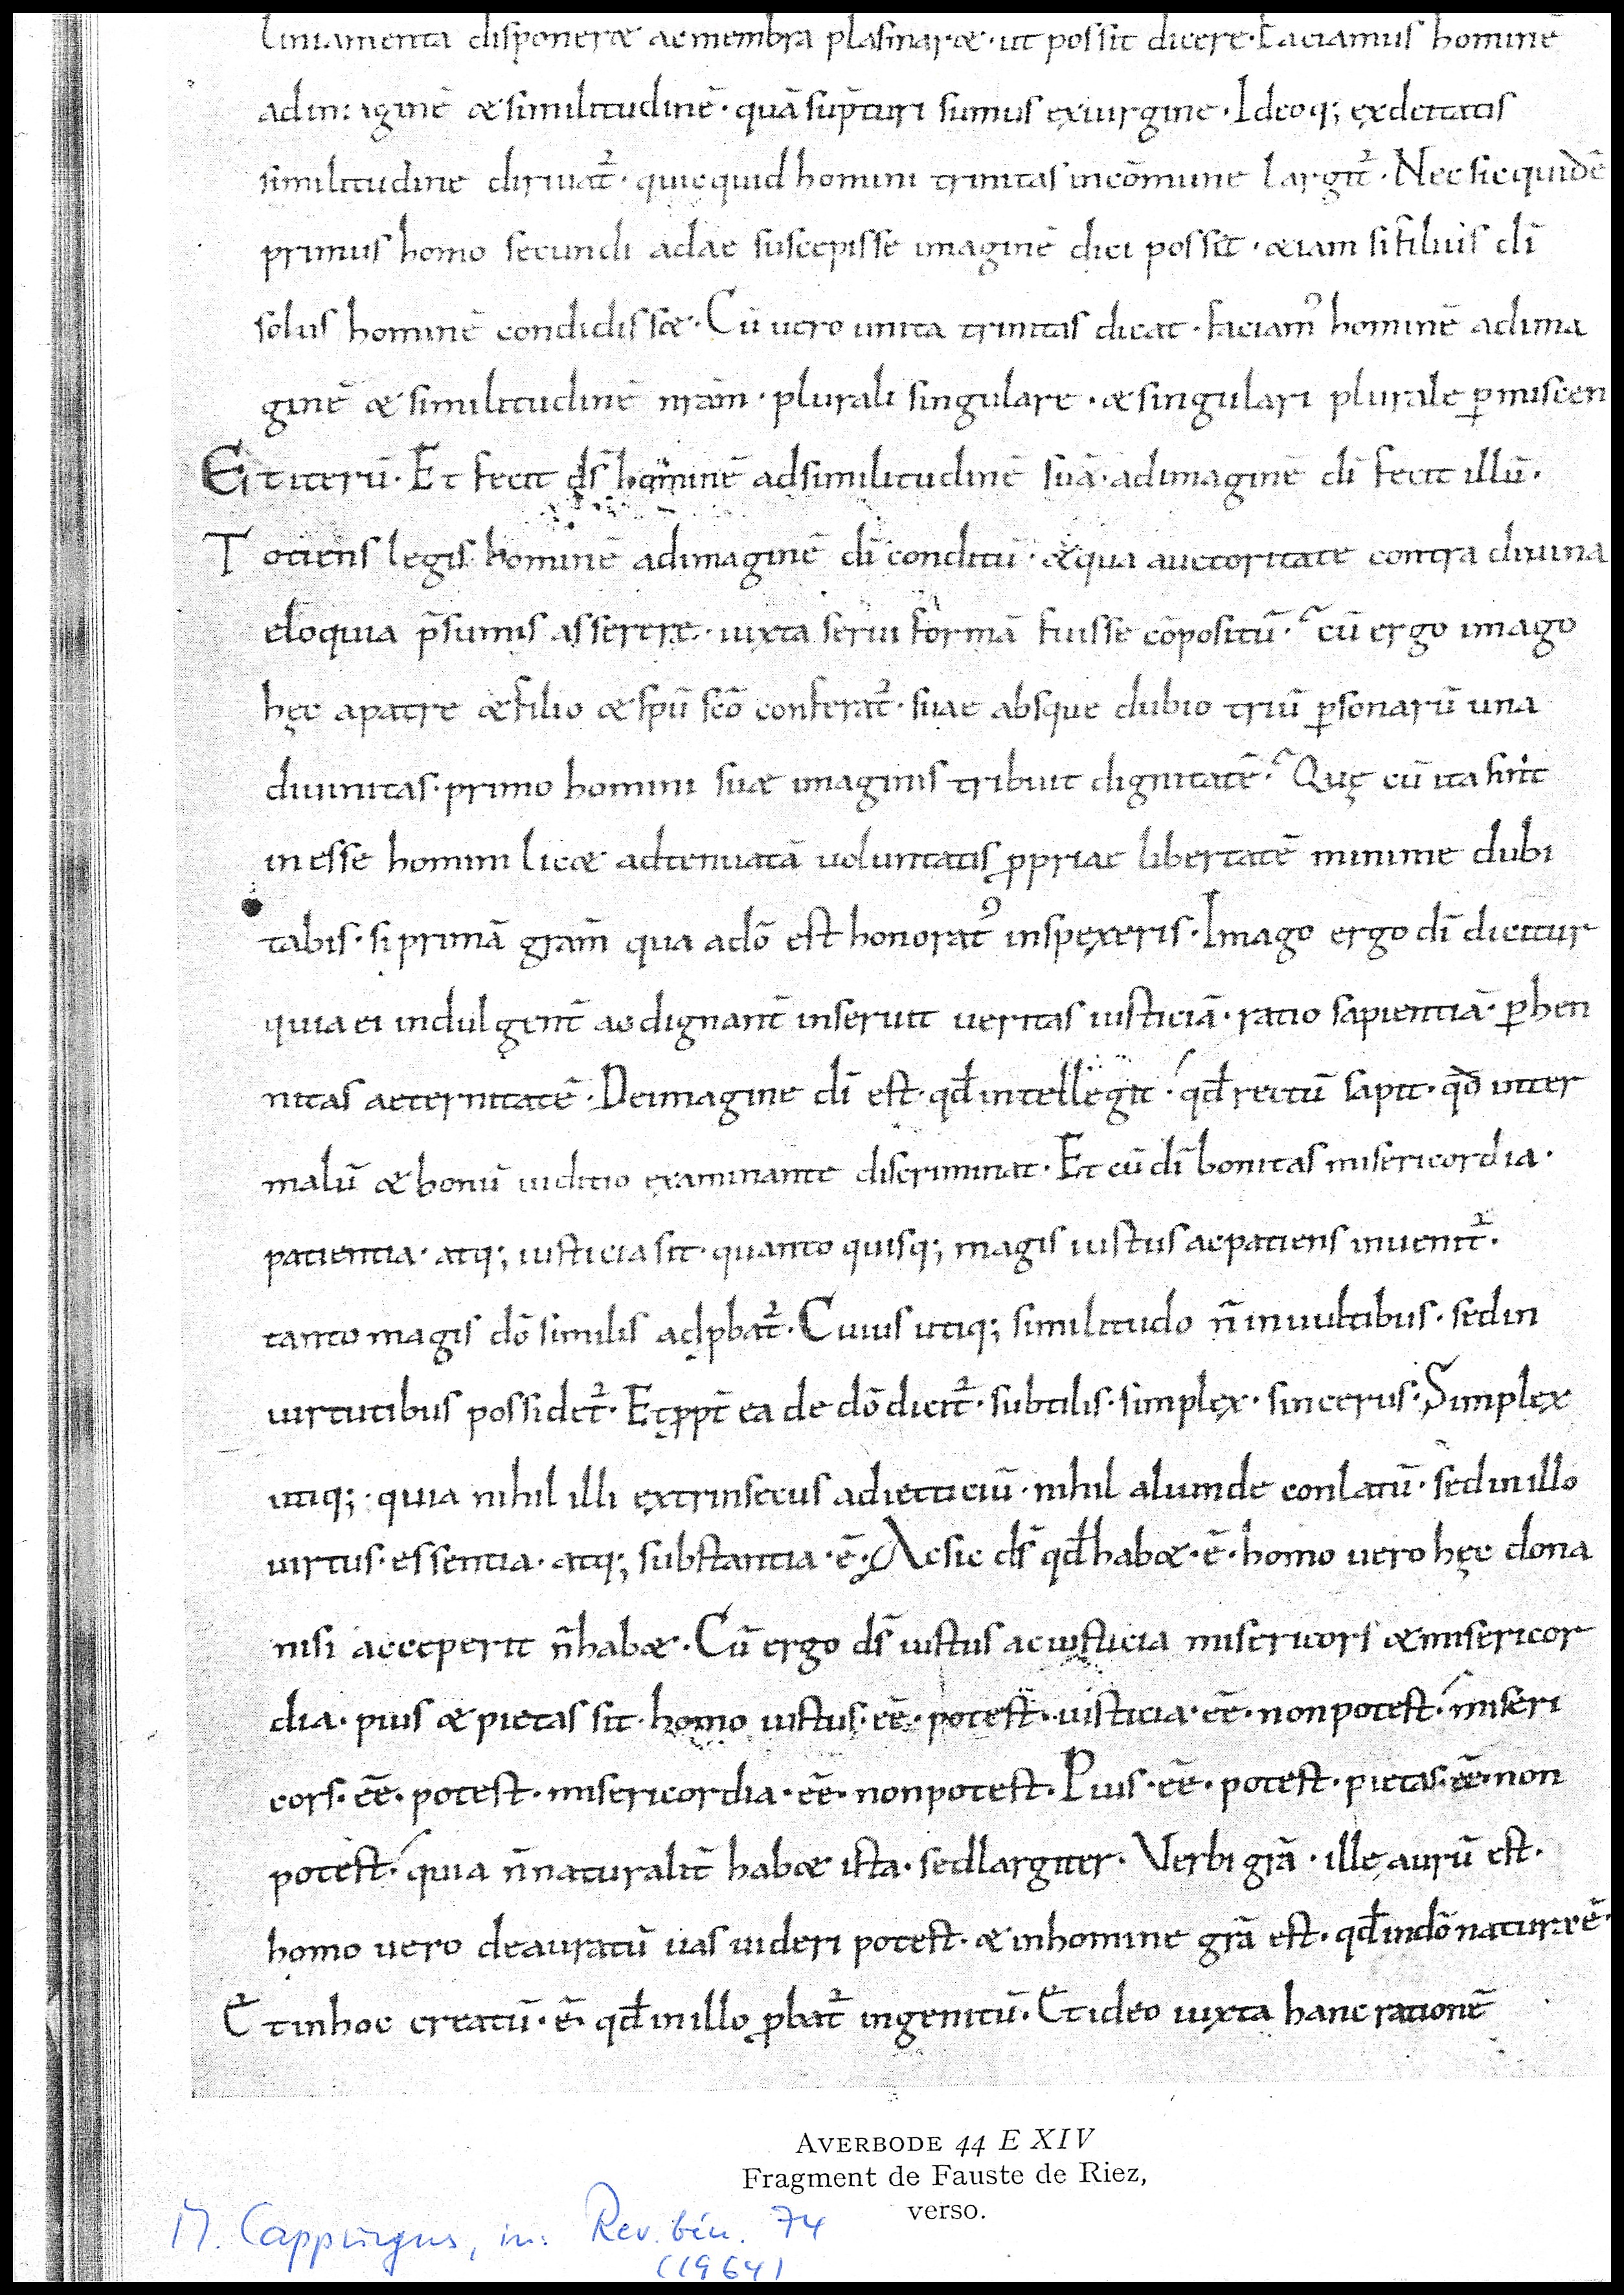 liniamenta disponeret ac membra plasmaret · ut possit dicere · Faciamus hominē
ad imaginē et similitudinē · quā sup̄turi sumus ex uirgine · Ideoq; ex deitatis
similitudine diriuat̄ · quicquid homini trinitas incōmune largit̄ · Nec sic quidē
primus homo secundi adae suscepisse imaginē dici possit · etiam si filius dī
solus hominē condidisset · Cū uero unita trinitas dicat · faciam' hominē ad ima
ginē et similitudinē nr̄am · plurali singulare · et singulari plurale p̱miscen
Et iterū · Et fecit ds̄ hominē ad similitudinē suā · ad imaginē dī fecit illū ·
Totiens legis hominē ad imaginē dī conditū · et qua auctoritate contra diuina
eloquia p̄sumis asserere · iuxta serui formā fuisse cōpositū · cū ergo imago
hęc a patre et filio et sp̄u sc̄o conferat̄ · siue absque dubio triū p̱sonarū una
diuinitas · primo homini suae imaginis tribuit dignitatē · Quę cū ita sint
inesse homini licet adtenuatā uoluntatis p̱priae libertatē minime dubi
tabis · si primā gr̄am qua a dō est honorat' inspexeris · Imago ergo dī dicitur
quia ei indulgent̄ ac dignant̄ inseruit ueritas iusticiā · ratio sapientiā · p̱hen
nitas aeternitatē · De imagine dī est · qđ intellegit · qđ rectū sapit · qđ inter
malū et bonū iuditio examinante discriminat · Et cū dī bonitas misericordia ·
patientia · atq; iusticia sit · quanto quisq; magis iustus ac patiens inuenit̄ ·
tanto magis dō similis adp̱bat̄ · Cuius utiq; similitudo n̄ in uultibus · sed in
uirtutibus possidet̄ · Et p̱pt̄ ea de dō dicit̄ · subtilis · simplex · sincerus · Simplex
utiq; · quia nihil illi extrinsecus adiecticiū · nihil aliunde conlatū · sed in illo
uirtus · essentia · atq; substantia · ē · Ac sic ds̄ qđ habet · ē · homo uero hęc dona
nisi acceperit n̄ habet · Cū ergo ds̄ iustus ac iusticia misericors et misericor
dia · pius et pietas sit · homo iustus · eē · potest · iusticia · eē · non potest · miseri
cors · eē · potest · misericordia · eē · non potest · Pius · eē · potest · pietas · eē · non
potest · quia n̄ naturalit̄ habet ista · sed largiter · Verbi grā · ille aurū est ·
homo uero deauratū uas uideri potest · et in homine grā est · qđ in dō natura ē ·
Et in hoc creatū · ē · qđ in illo p̱bat̄ ingenitū · Et ideo iuxta hanc rationē
AVERBODE 44 E XIV
Fragment de Fauste de Riez,
verso.
M. Cappuyns, in: Rev. bén. 74
(1964)